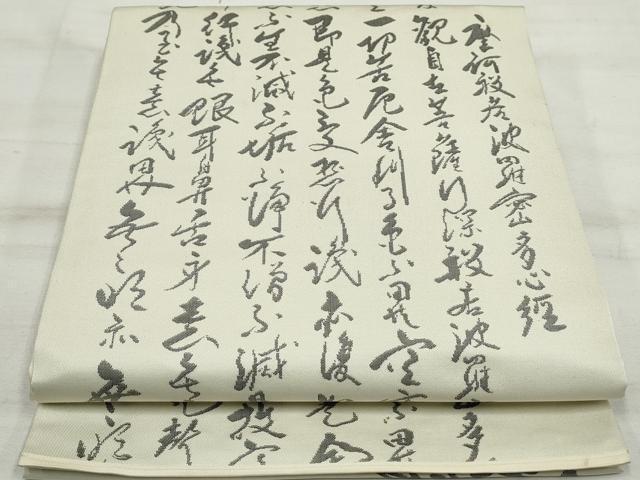 摩訶般若波羅蜜多心経
観自在菩薩行深般若波羅蜜多
一切苦厄舎利子色不異空空不異
即是色受想行識亦復如是舎
不生不滅不垢不浄不増不減是故空
行識無眼耳鼻舌身意無色声
乃至無意識界無無明亦無無明